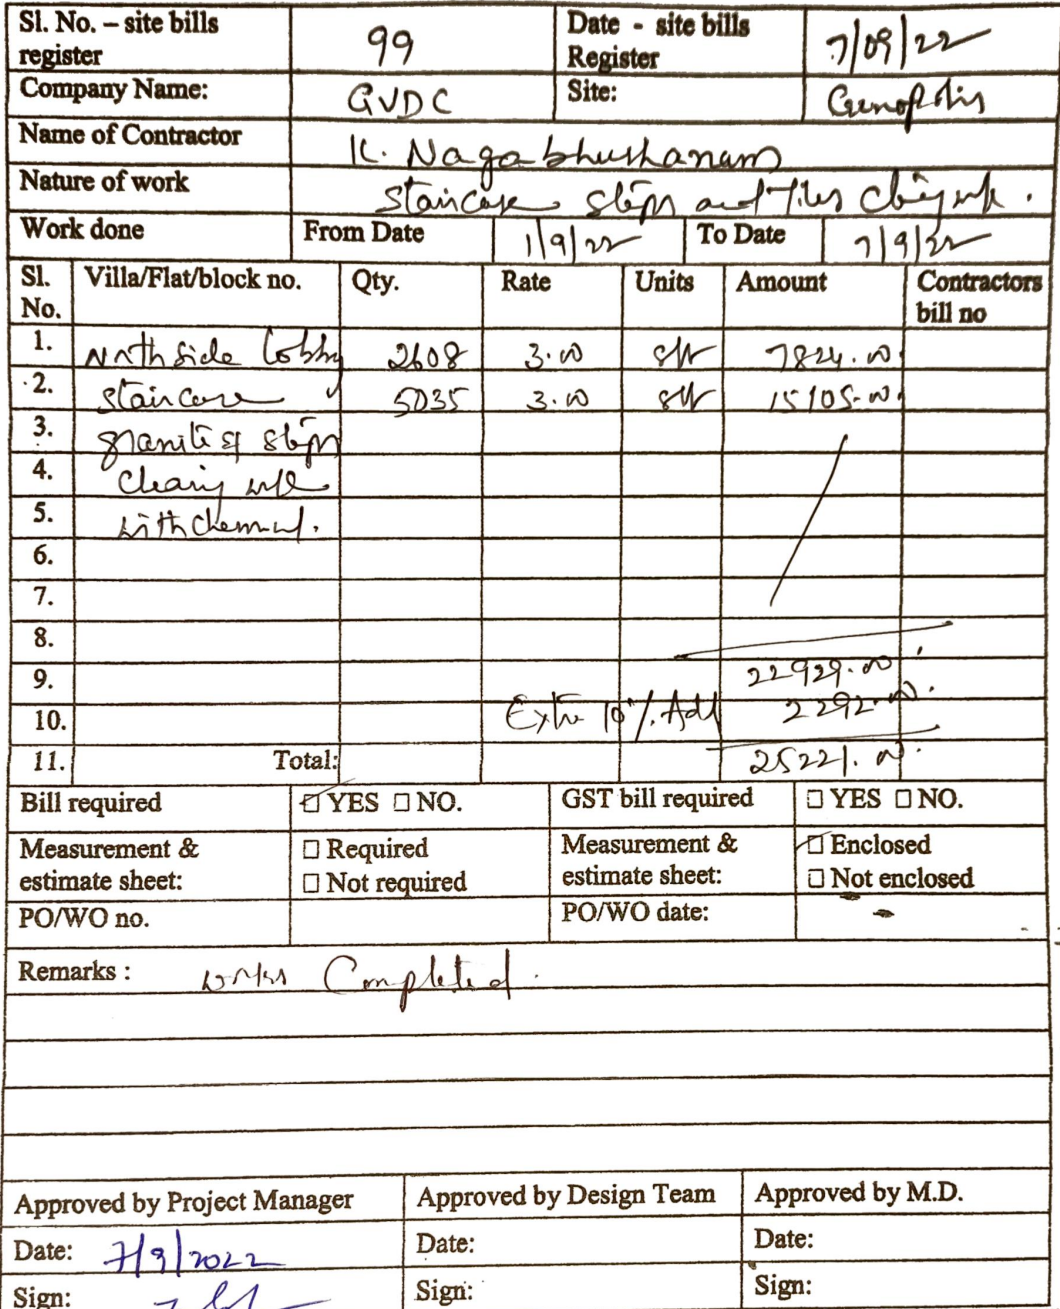 Sl. No. – site bills register 99 Date - site bills Register 7/09/22
Company Name: GVDC Site: Genopolis
Name of Contractor K. Nagabhushanam
Nature of work Staircase steps and Tiles
Work done From Date 1/9/22 To Date 7/9/22
Sl. No. Villa/Flat/block no. Qty. Rate Units Amount Contractors bill no
1. North side Lobby 2608 3.00 sft 7824.00
2. staircase 5035 3.00 sft 15105.00
3. granite steps
4. Cleaning
5. with chemical.
6.
7.
8.
9. 22929.00
10. Extra 10% Add 2292.00
11. Total: 25221.00
Bill required ☑ YES ☐ NO. GST bill required ☐ YES ☐ NO.
Measurement & estimate sheet: ☐ Required ☐ Not required Measurement & estimate sheet: ☑ Enclosed ☐ Not enclosed
PO/WO no. PO/WO date: -
Remarks : works Completed.
Approved by Project Manager Approved by Design Team Approved by M.D.
Date: 7/9/2022 Date: Date:
Sign: Sign: Sign: